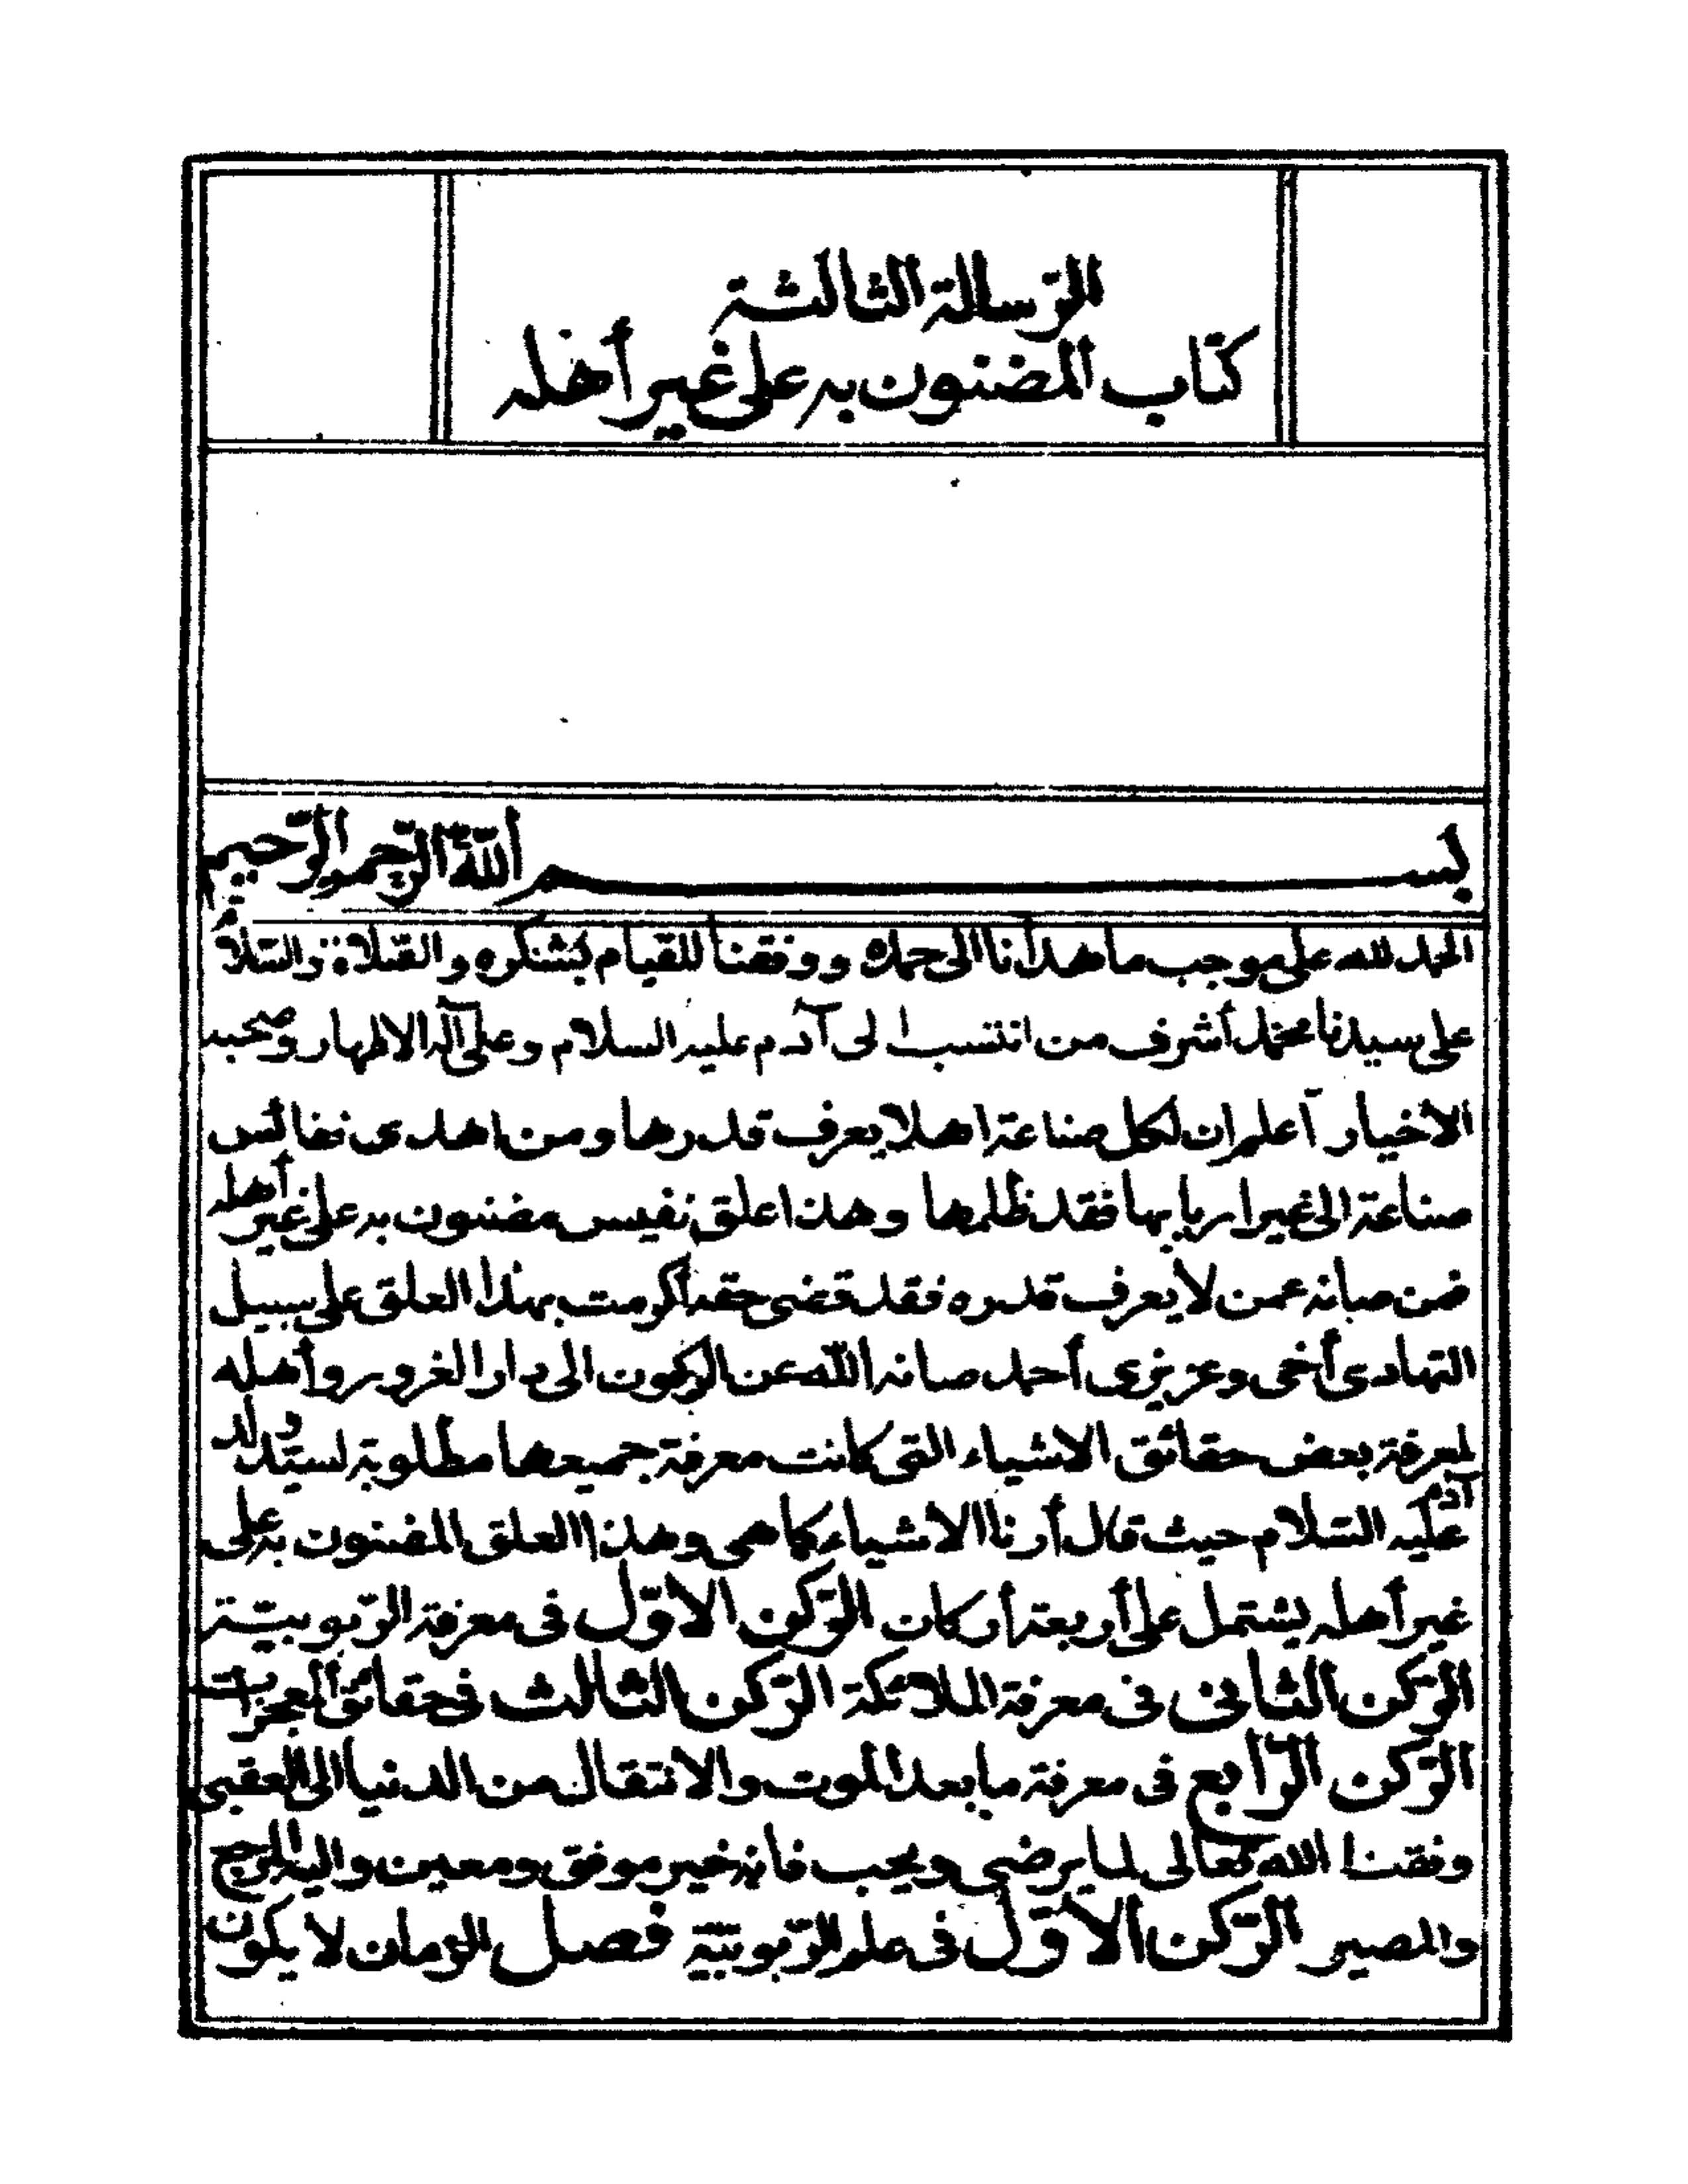 الرّسالة الثالثة
كتاب المضنون به على غير أهله
بسم اللّه الرّحمن الرّحيم
الحمد لله على موجب ما هدأنا الى حمده ووفقنا للقيام بشكره والصّلاة والسّلام
على سيدنا محمّد أشرف من انتسب الى آدم عليه السلام وعلى آله الاطهار وصحبه
الأخيار اعلم ان لكل صناعة اهلا يعرف قدرها ومن اهدى نفائس
صناعة الى غير اربابها فقد ظلمها وهذا علق نفيس مضنون به على غير أهله
فمن صانه عمن لا يعرف قدره فقد قضى حقه أكرمت بهذا العلق على سبيل
التهادى أخى وعزيزى أحمد صانه اللّه عن الركون الى دار الغرور وأهله
لمعرفة بعض حقائق الاشياء التى كانت معرفة جميعها مطلوبة لسيّد ولد
آدم عليه السّلام حيث قال أرنا الاشياء كما هى وهذا العلق المضنون به على
غير أهله يشتمل على أربعة أركان الرّكن الاوّل فى معرفة الرّبوبيّة
الرّكن الثانى فى معرفة الملائكة الرّكن الثالث فى حقائق المعجزات
الرّكن الرّابع فى معرفة ما بعد الموت والانتقال من الدنيا الى العقبى
وفقنا الله تعالى لما يرضى ويحب فانه خير موفق ومعين واليه المرجع
والمصير الرّكن الأوّل فى علم الرّبوبيّة فصل الزمان لا يكون